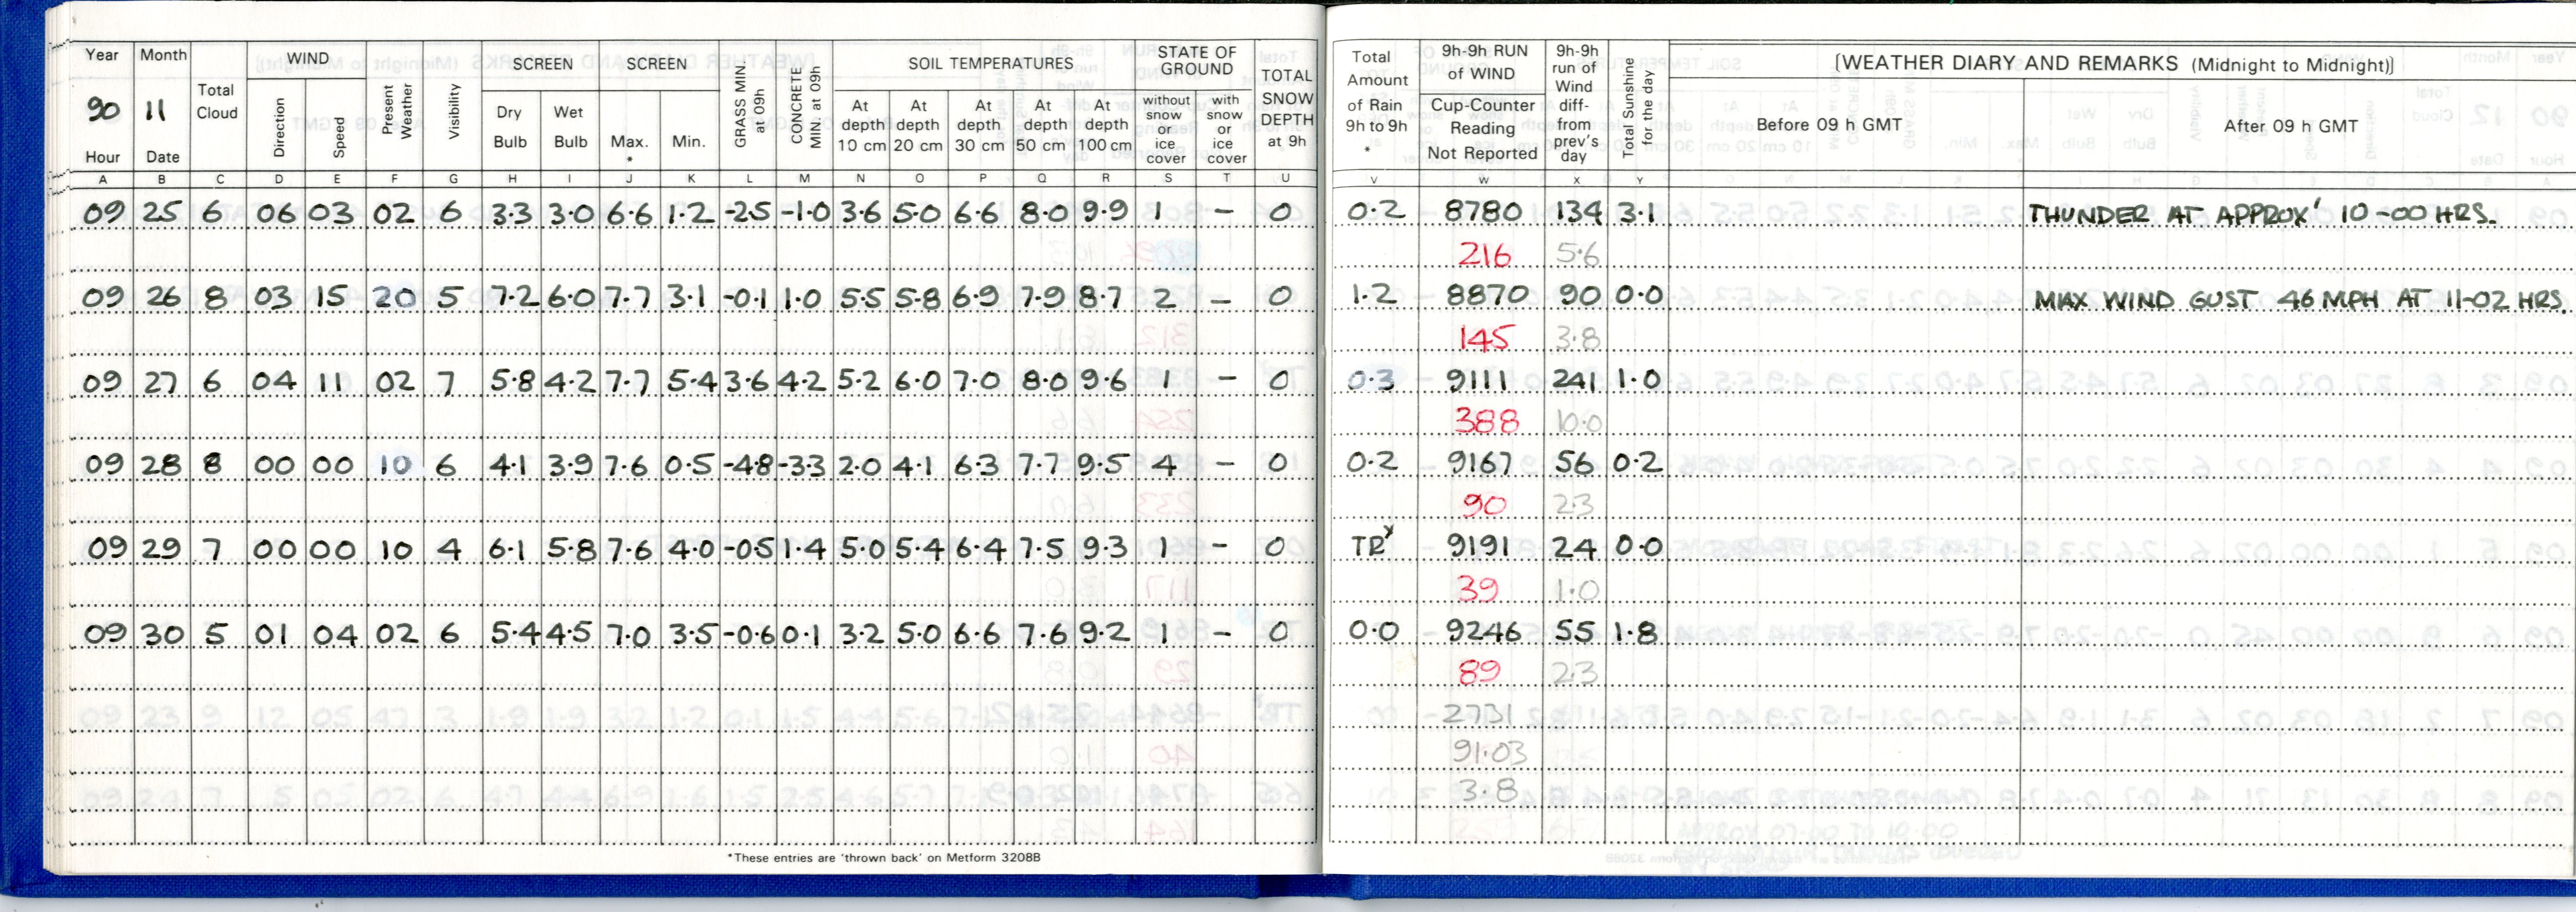 Year Month WIND SCREEN SCREEN SOIL TEMPERATURES STATE OF GROUND
90 11 Total Cloud Direction Speed Present Weather Visibility Dry Bulb Wet Bulb Max. * Min. GRASS MIN. at 09h CONCRETE MIN. at 09h At depth 10 cm At depth 20 cm At depth 30 cm At depth 50 cm At depth 100 cm without snow or ice cover with snow or ice cover TOTAL SNOW DEPTH at 9h
Hour Date
A B C D E F G H I J K L M N O P Q R S T U
09 25 6 06 03 02 6 3.3 3.0 6.6 1.2 -2.5 -1.0 3.6 5.0 6.6 8.0 9.9 1 – 0
09 26 8 03 15 20 5 7.2 6.0 7.7 3.1 -0.1 1.0 5.5 5.8 6.9 7.9 8.7 2 – 0
09 27 6 04 11 02 7 5.8 4.2 7.7 5.4 3.6 4.2 5.2 6.0 7.0 8.0 9.6 1 – 0
09 28 8 00 00 10 6 4.1 3.9 7.6 0.5 -4.8 -3.3 2.0 4.1 6.3 7.7 9.5 4 – 0
09 29 7 00 00 10 4 6.1 5.8 7.6 4.0 -0.5 1.4 5.0 5.4 6.4 7.5 9.3 1 – 0
09 30 5 01 04 02 6 5.4 4.5 7.0 3.5 -0.6 0.1 3.2 5.0 6.6 7.6 9.2 1 – 0
*These entries are 'thrown back' on Metform 3208B
Total Amount of Rain 9h to 9h * 9h-9h RUN of WIND Cup-Counter Reading Not Reported 9h-9h run of Wind diff- from prev's day Total Sunshine for the day [WEATHER DIARY AND REMARKS (Midnight to Midnight)]
Before 09 h GMT After 09 h GMT
V W X Y
0.2 8780 134 3.1 THUNDER AT APPROX' 10-00 HRS.
216 5.6
1.2 8870 90 0.0 MAX WIND GUST 46 MPH AT 11-02 HRS.
145 3.8
0.3 9111 241 1.0
388 10.0
0.2 9167 56 0.2
90 2.3
TR 9191 24 0.0
39 1.0
0.0 9246 55 1.8
89 2.3
2731
91.03
3.8